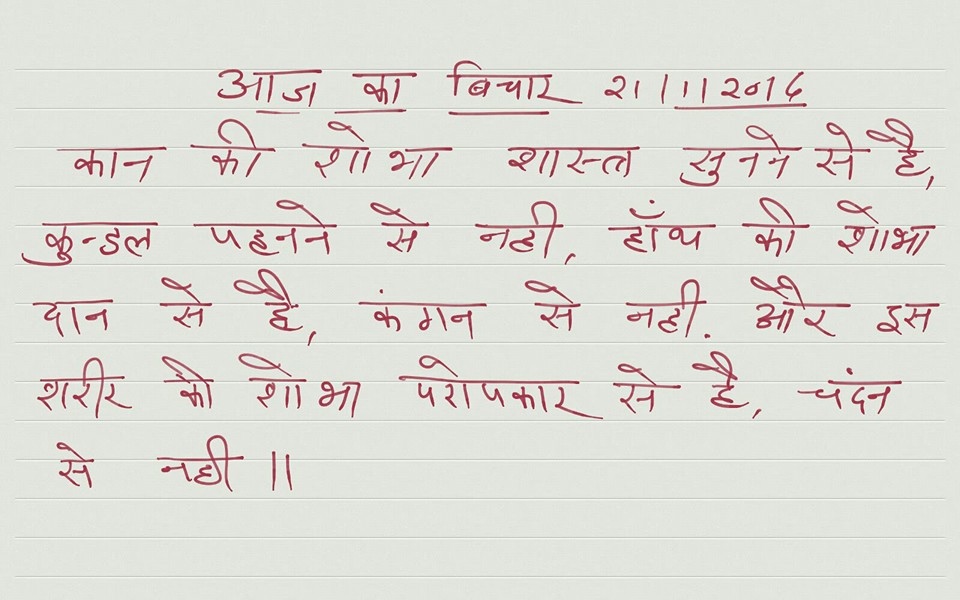 आज का बिचार २१।११२०१६
कान की शोभा शास्त्र सुनने से है,
कुन्डल पहनने से नही, हाँथ की शोभा
दान से है, कंगन से नही. और इस
शरीर की शोभा परोपकार से है, चंदन
से नही ॥